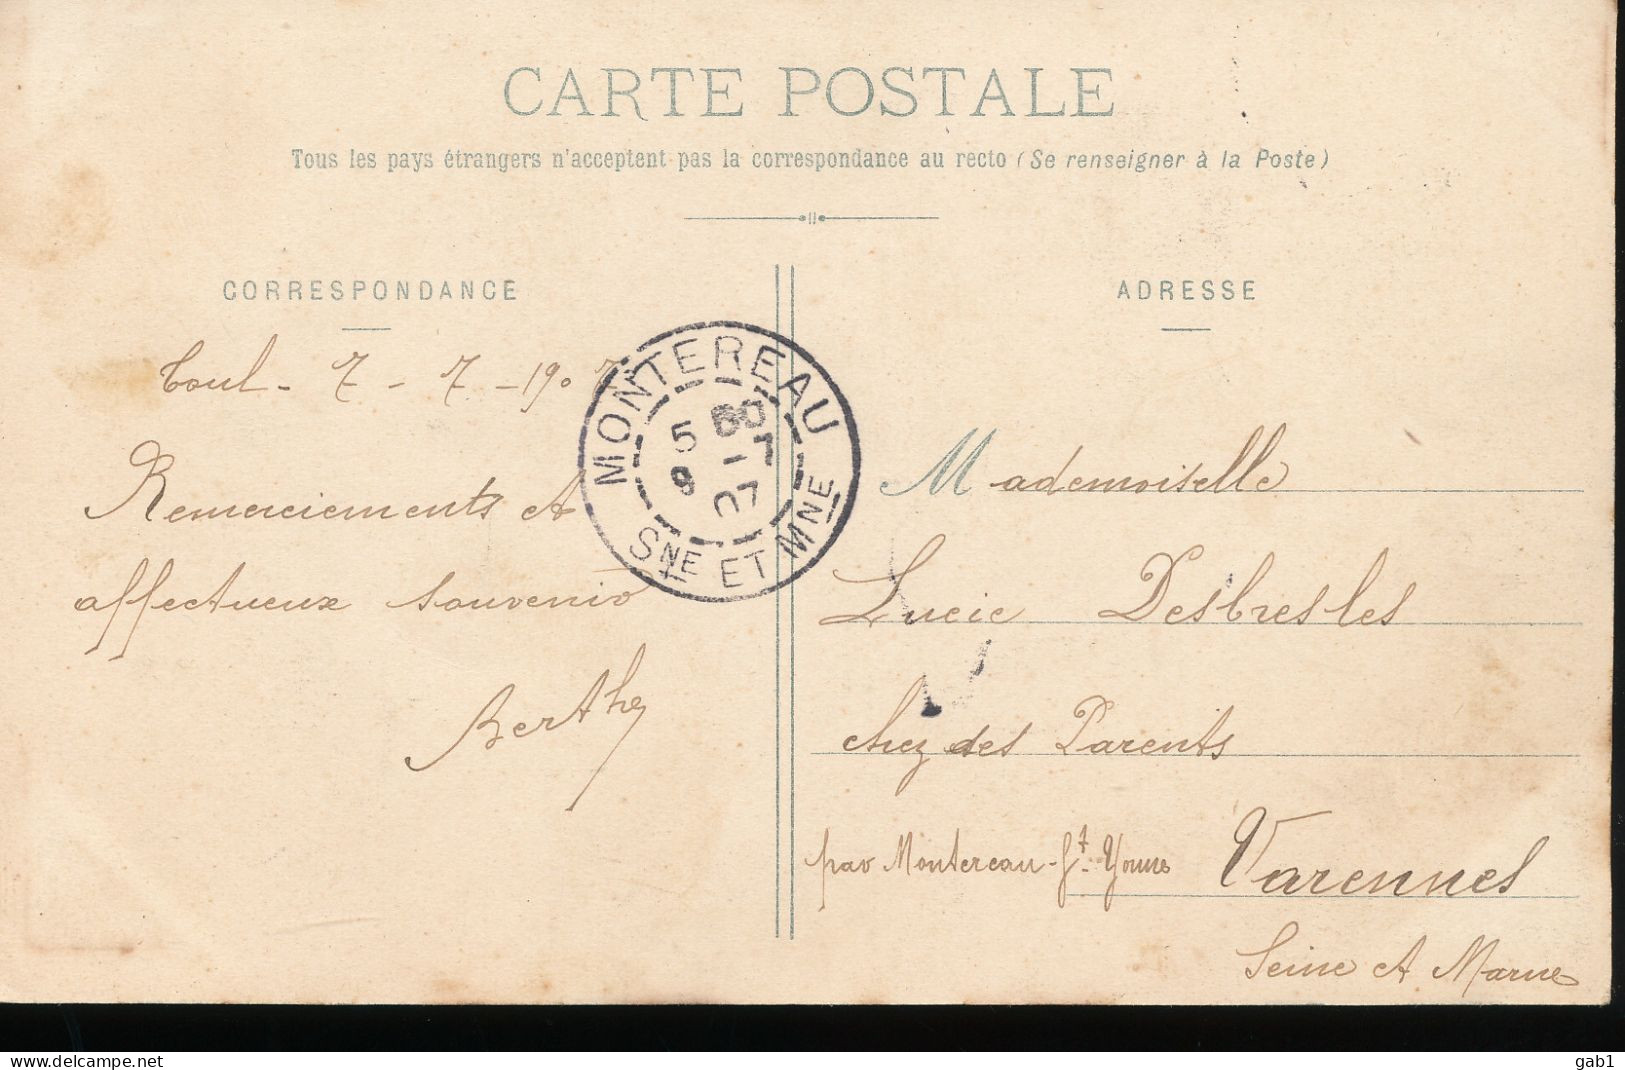 CARTE POSTALE
Tous les pays étrangers n'acceptent pas la correspondance au recto (Se renseigner à la Poste)
CORRESPONDANCE
Toul - 7 - 7 - 1907
Remerciements et
affectueux souvenir
Berthe
MONTEREAU
5 60
9 - 7
07
SNE ET MNE
ADRESSE
Mademoiselle
Lucie Desbresles
chez ses Parents
par Montereau-ft. Yonne Varennes
Seine et Marne
www.delcampe.net
gab1